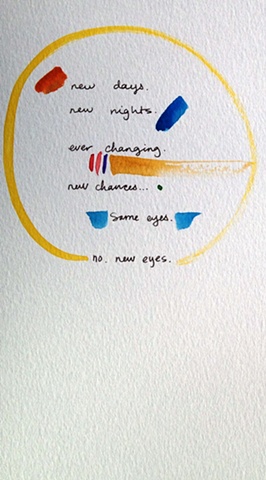 new days.
new nights.
ever changing.
new chances...
Same eyes.
no. new eyes.